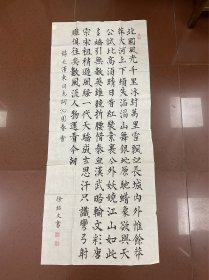 北國風光千里冰封萬里雪飄望長城内外惟餘莽
莽大河上下頓失滔滔山舞銀蛇原馳蠟象欲與天
公試比高須晴日看紅裝素裹分外妖嬈江山如此
多嬌引無數英雄競折腰惜秦皇漢武略輸文采唐
宗宋祖稍遜風騷一代天驕成吉思汗只識彎弓射
雕俱往矣數風流人物還看今朝
毛澤東同志詞沁園春雪
徐文書